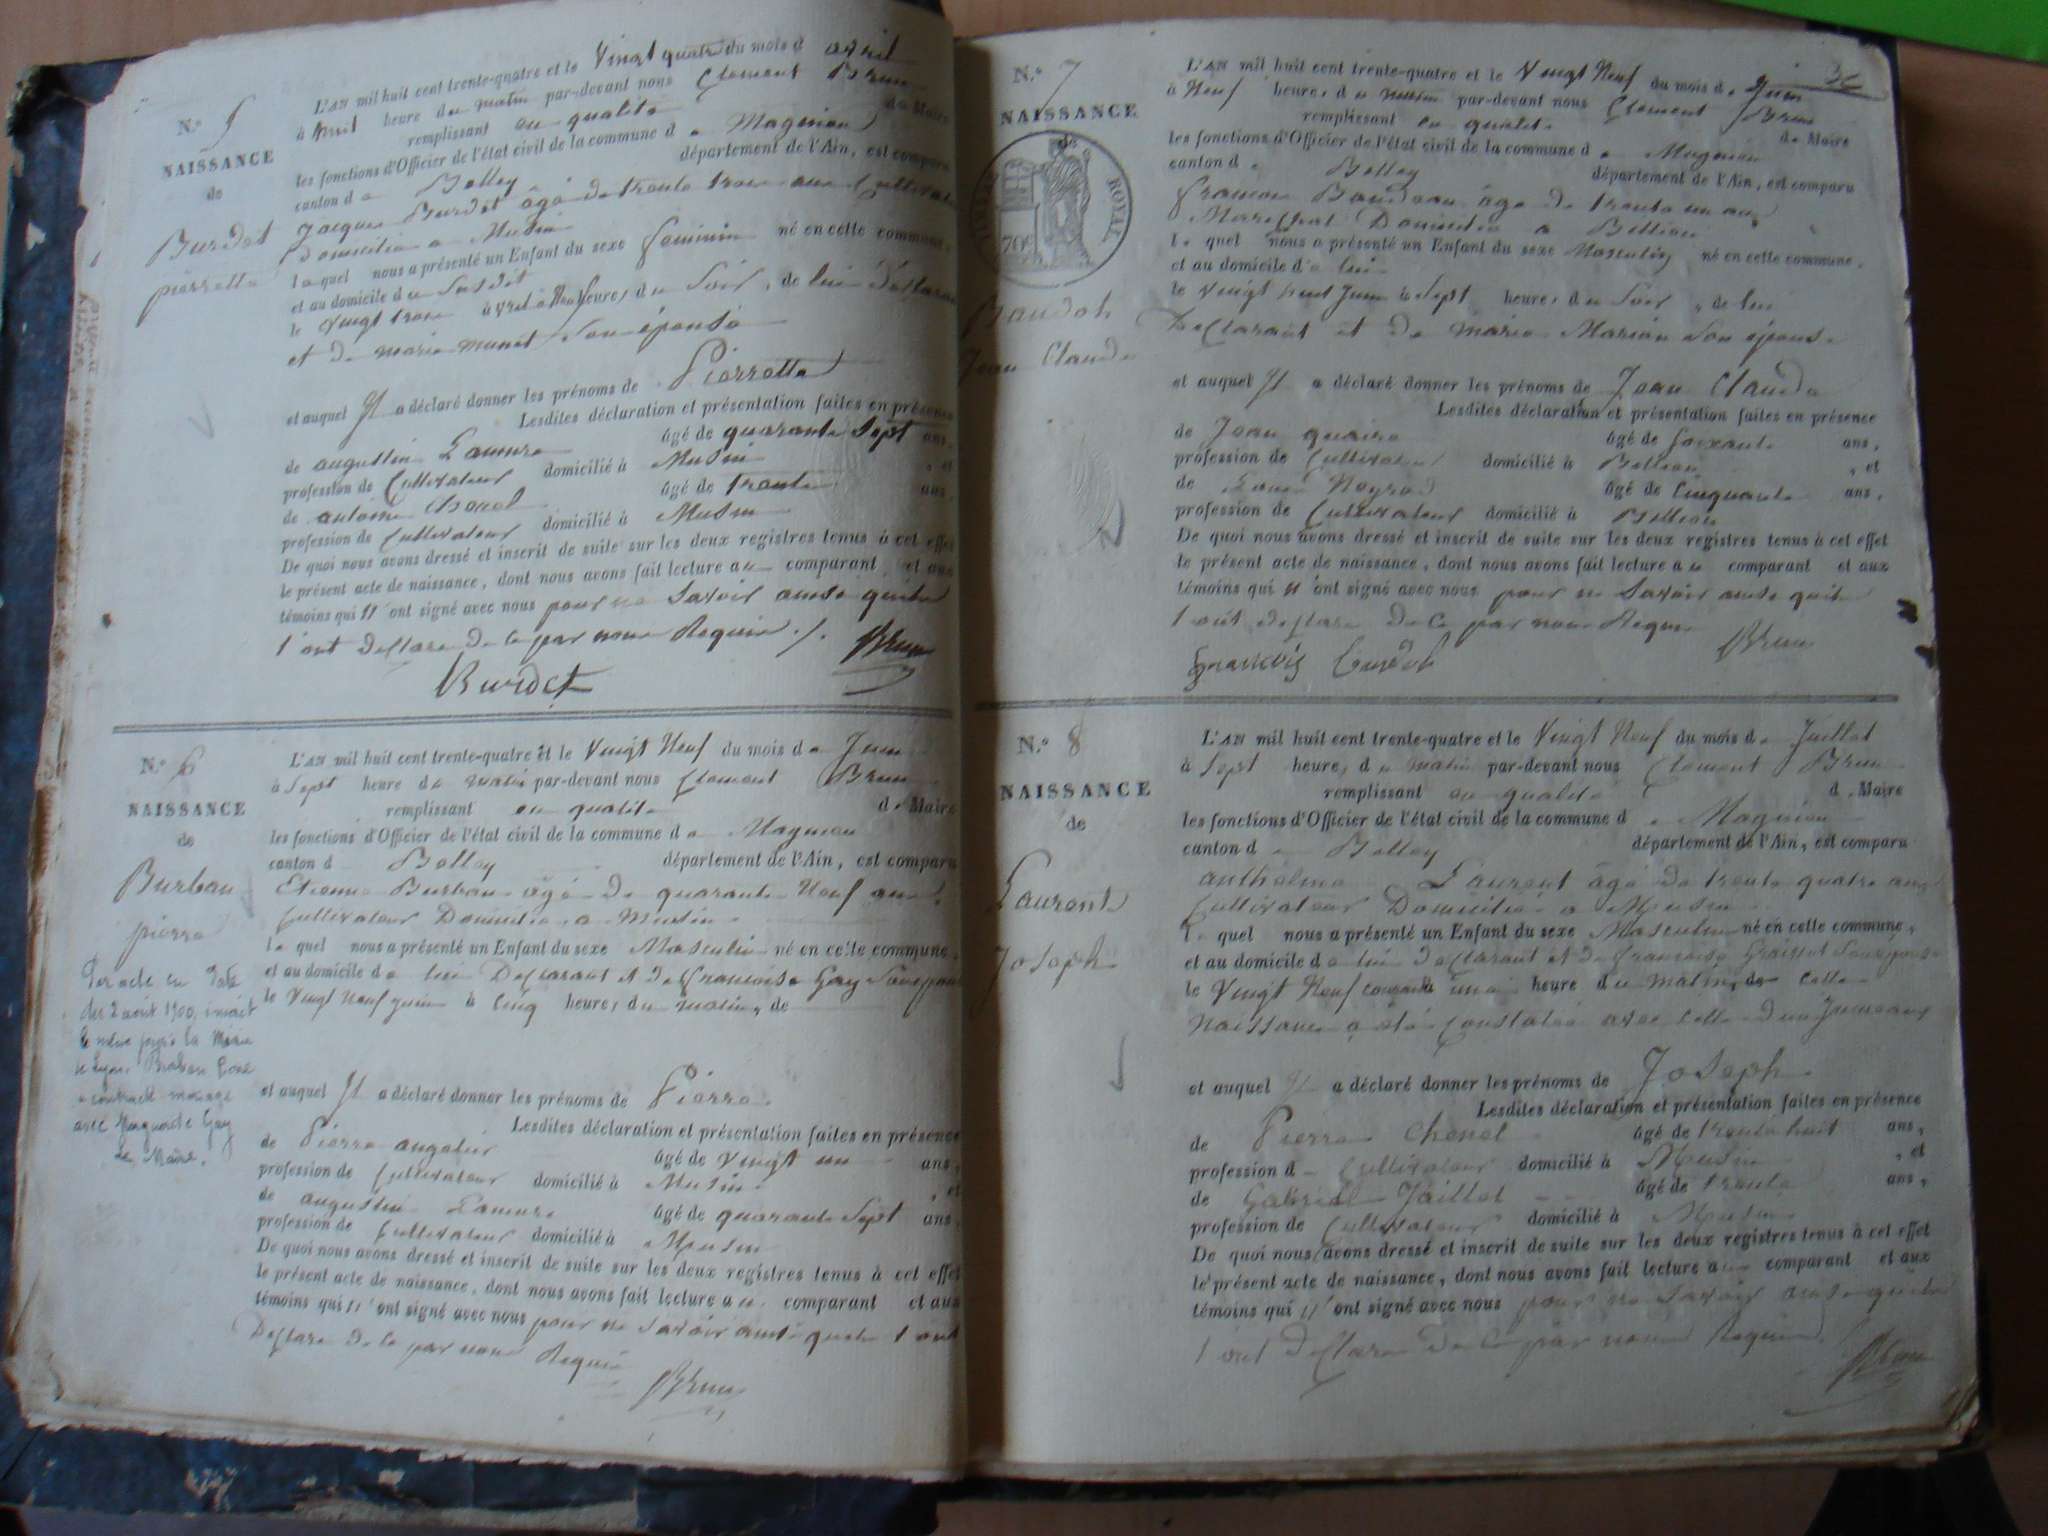 N.º 5
NAISSANCE
de
Burdet
pierrette
L'AN mil huit cent trente-quatre et le Vingt quatre du mois d avril
à huit heure du matin par-devant nous Clement Brun
remplissant en qualité de Maire
les fonctions d'Officier de l'état civil de la commune d e Magnieu
canton d e Belley département de l'Ain, est comparu
jacques Burdet âgé de trente trois ans Cultivateur
Domicilié a Musin
le quel nous a présenté un Enfant du sexe feminin né en cette commune,
et au domicile d u Susdit
le vingt trois avril à Neuf heure, du Soir, de lui Déclarant
et de marie munet Son épouse
et auquel Il a déclaré donner les prénoms de Pierrette
Lesdites déclaration et présentation faites en présence
de augustin Lamure âgé de quarante Sept ans,
profession de Cultivateur domicilié à Musin , et
de antoine Chonel âgé de trente ans,
profession de Cultivateur domicilié à Musin
De quoi nous avons dressé et inscrit de suite sur les deux registres tenus à cet effet
le présent acte de naissance, dont nous avons fait lecture au comparant et aux
témoins qui n'ont signé avec nous pour ne Savoir ainsi qu'ils
l'ont Déclaré de ce par nous Requis ./. Brun
Burdet
N.º 6
NAISSANCE
de
Burban
pierre
Par acte en date
du 2 août 1900, inscrit
à la Mairie
de Lyon
a contracté mariage
avec Marguerite Gay
Le Maire.
L'AN mil huit cent trente-quatre et le Vingt Neuf du mois d e Juin
à Sept heure du matin par-devant nous Clement Brun
remplissant en qualité de Maire
les fonctions d'Officier de l'état civil de la commune d e Magnieu
canton d Belley département de l'Ain, est comparu
Etienne Burban âgé de quarante Neuf ans
Cultivateur Domicilié a Musin
le quel nous a présenté un Enfant du sexe Masculin né en cette commune,
et au domicile d e lui Déclarant et de francoise Gay Son épouse
le Vingt Neuf juin à Cinq heure, du matin, de
et auquel Il a déclaré donner les prénoms de Pierre.
Lesdites déclaration et présentation faites en présence
de Pierre âgé de Vingt un ans,
profession de Cultivateur domicilié à Musin , et
de augustin Lamure âgé de quarante Sept ans,
profession de Cultivateur domicilié à Musin
De quoi nous avons dressé et inscrit de suite sur les deux registres tenus à cet effet
le présent acte de naissance, dont nous avons fait lecture au comparant et aux
témoins qui n'ont signé avec nous pour ne Savoir ainsi qu'ils l'ont
Déclaré de ce par nous Requis
Brun
N.º 7
NAISSANCE
de
TIMBRE ROYAL
70c
Baudot
Jean Claude
L'AN mil huit cent trente-quatre et le Vingt Neuf du mois d e Juin
à Neuf heure, du matin par-devant nous Clement Brun
remplissant en qualité de Maire
les fonctions d'Officier de l'état civil de la commune d e Magnieu
canton d e Belley département de l'Ain, est comparu
francois âgé de trente un ans
Marechal Domicilié a Billieu
le quel nous a présenté un Enfant du sexe Masculin né en cette commune,
et au domicile d e lui
le vingt huit Juin à Sept heure, du Soir, de lui
Déclarant et de marie Marian Son épouse
et auquel Il a déclaré donner les prénoms de Jean Claude
Lesdites déclaration et présentation faites en présence
de Jean âgé de Soixante ans,
profession de Cultivateur domicilié à Billieu , et
de Louis Neyrod âgé de Cinquante ans,
profession de Cultivateur domicilié à Billieu
De quoi nous avons dressé et inscrit de suite sur les deux registres tenus à cet effet
le présent acte de naissance, dont nous avons fait lecture au comparant et aux
témoins qui n'ont signé avec nous pour ne Savoir ainsi qu'ils
l'ont déclaré de ce par nous Requis
Brun
francois
N.º 8
NAISSANCE
de
Laurent
Joseph
L'AN mil huit cent trente-quatre et le Vingt Neuf du mois d e Juillet
à Sept heure, du matin par-devant nous Clement Brun
remplissant en qualité de Maire
les fonctions d'Officier de l'état civil de la commune d e Magnieu
canton d e Belley département de l'Ain, est comparu
anthelme Laurent âgé de trente quatre ans
Cultivateur Domicilié a Musin
le quel nous a présenté un Enfant du sexe Masculin né en cette commune,
et au domicile d e lui déclarant et de francoise Son épouse
le Vingt Neuf courant à une heure du matin, de Cette
Naissance a été Constatée avec Celle d'un Jumeaux
et auquel Il a déclaré donner les prénoms de Joseph.
Lesdites déclaration et présentation faites en présence
de Pierre Chonel âgé de trente huit ans,
profession d e Cultivateur domicilié à Musin , et
de Gabriel Jaillet âgé de trente ans,
profession de Cultivateur domicilié à Musin
De quoi nous avons dressé et inscrit de suite sur les deux registres tenus à cet effet
le présent acte de naissance, dont nous avons fait lecture au comparant et aux
témoins qui n'ont signé avec nous pour ne Savoir ainsi qu'ils
l'ont déclaré de ce par nous Requis
Brun